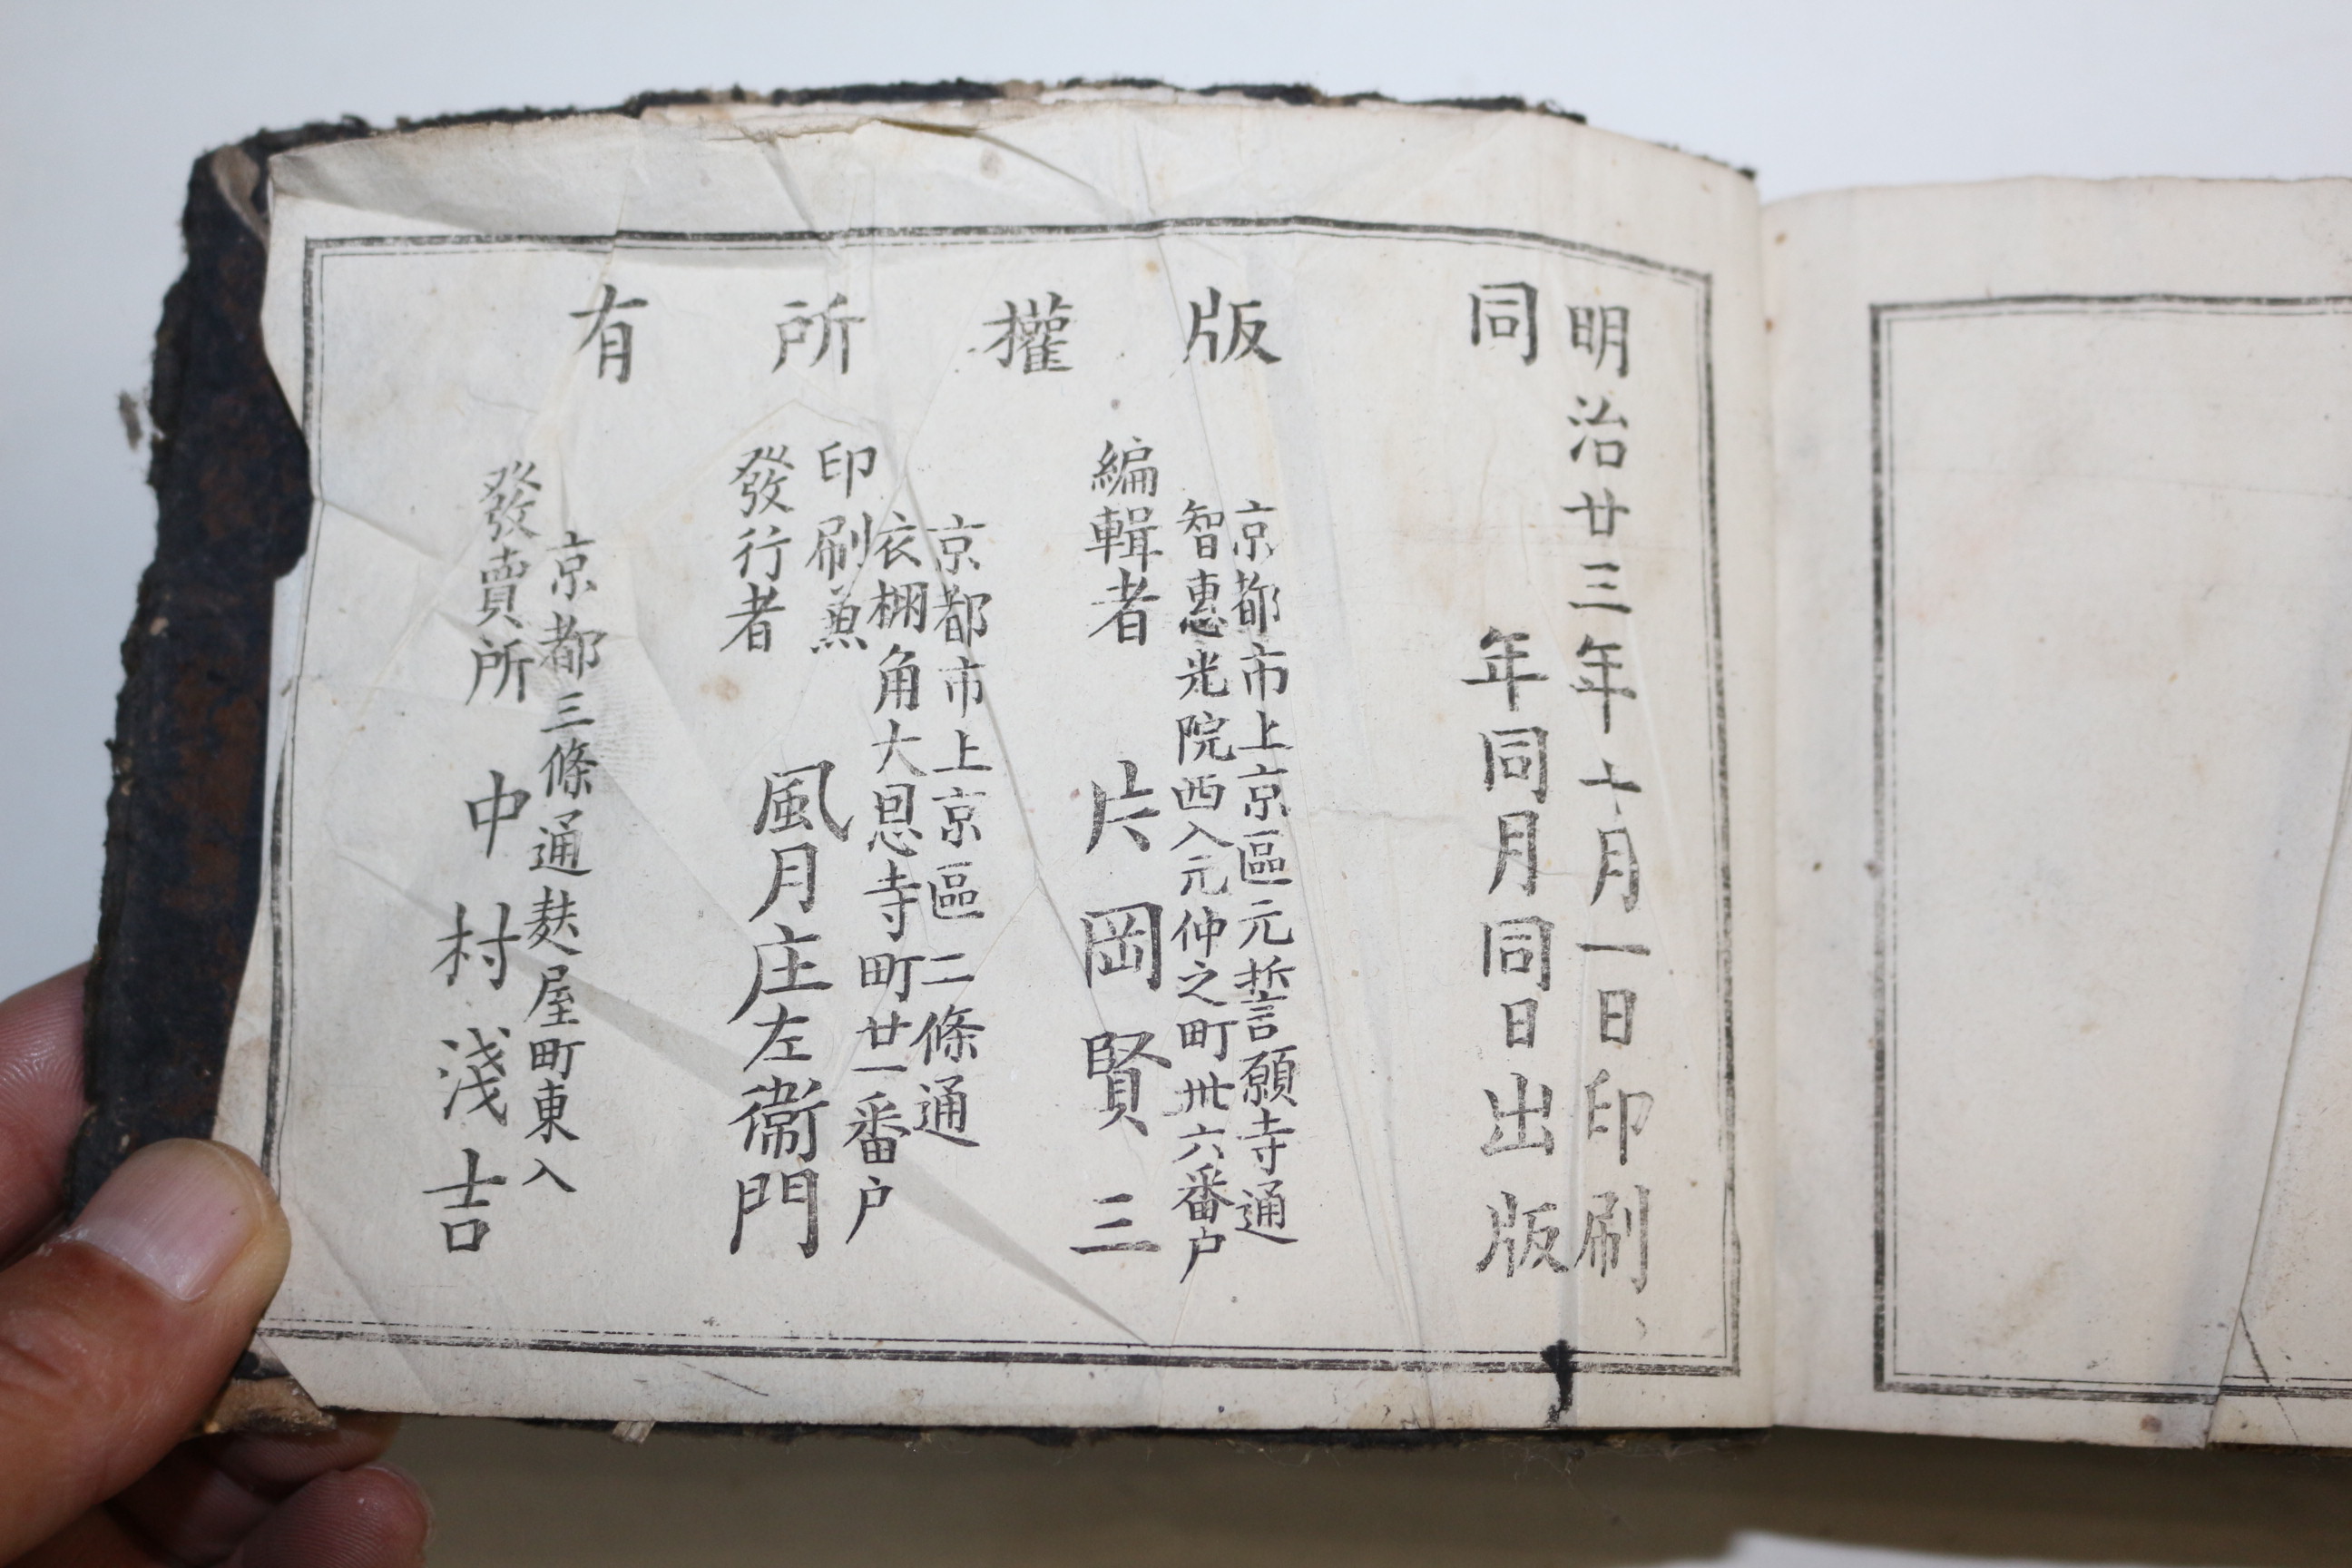 明治廿三年十月一日印刷
同年同月同日出版
版權所有
京都市上京區元誓願寺通
智惠光院西入元仲之町卅六番户
編輯者 片岡賢三
京都市上京區二條通
衣棚角大恩寺町廿一番户
印刷兼
發行者 風月庄左衛門
京都三條通麸屋町東入
發賣所 中村淺吉